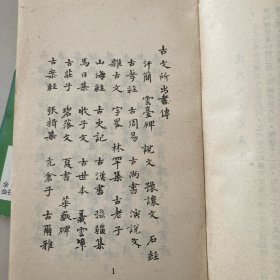 古文所出書傳
汗簡 雲臺碑 說文 石經
古孝經 古周易 古尚書 演說文
雜古文 字畧 林罕集 古老子
山海經 古史記 古漢書 孫強集
馬日集 牧子文 古世本 義雲章
古莊子 碧落文 夏書 華嶽碑
古樂經 張揖集 亢倉子 古爾雅
1